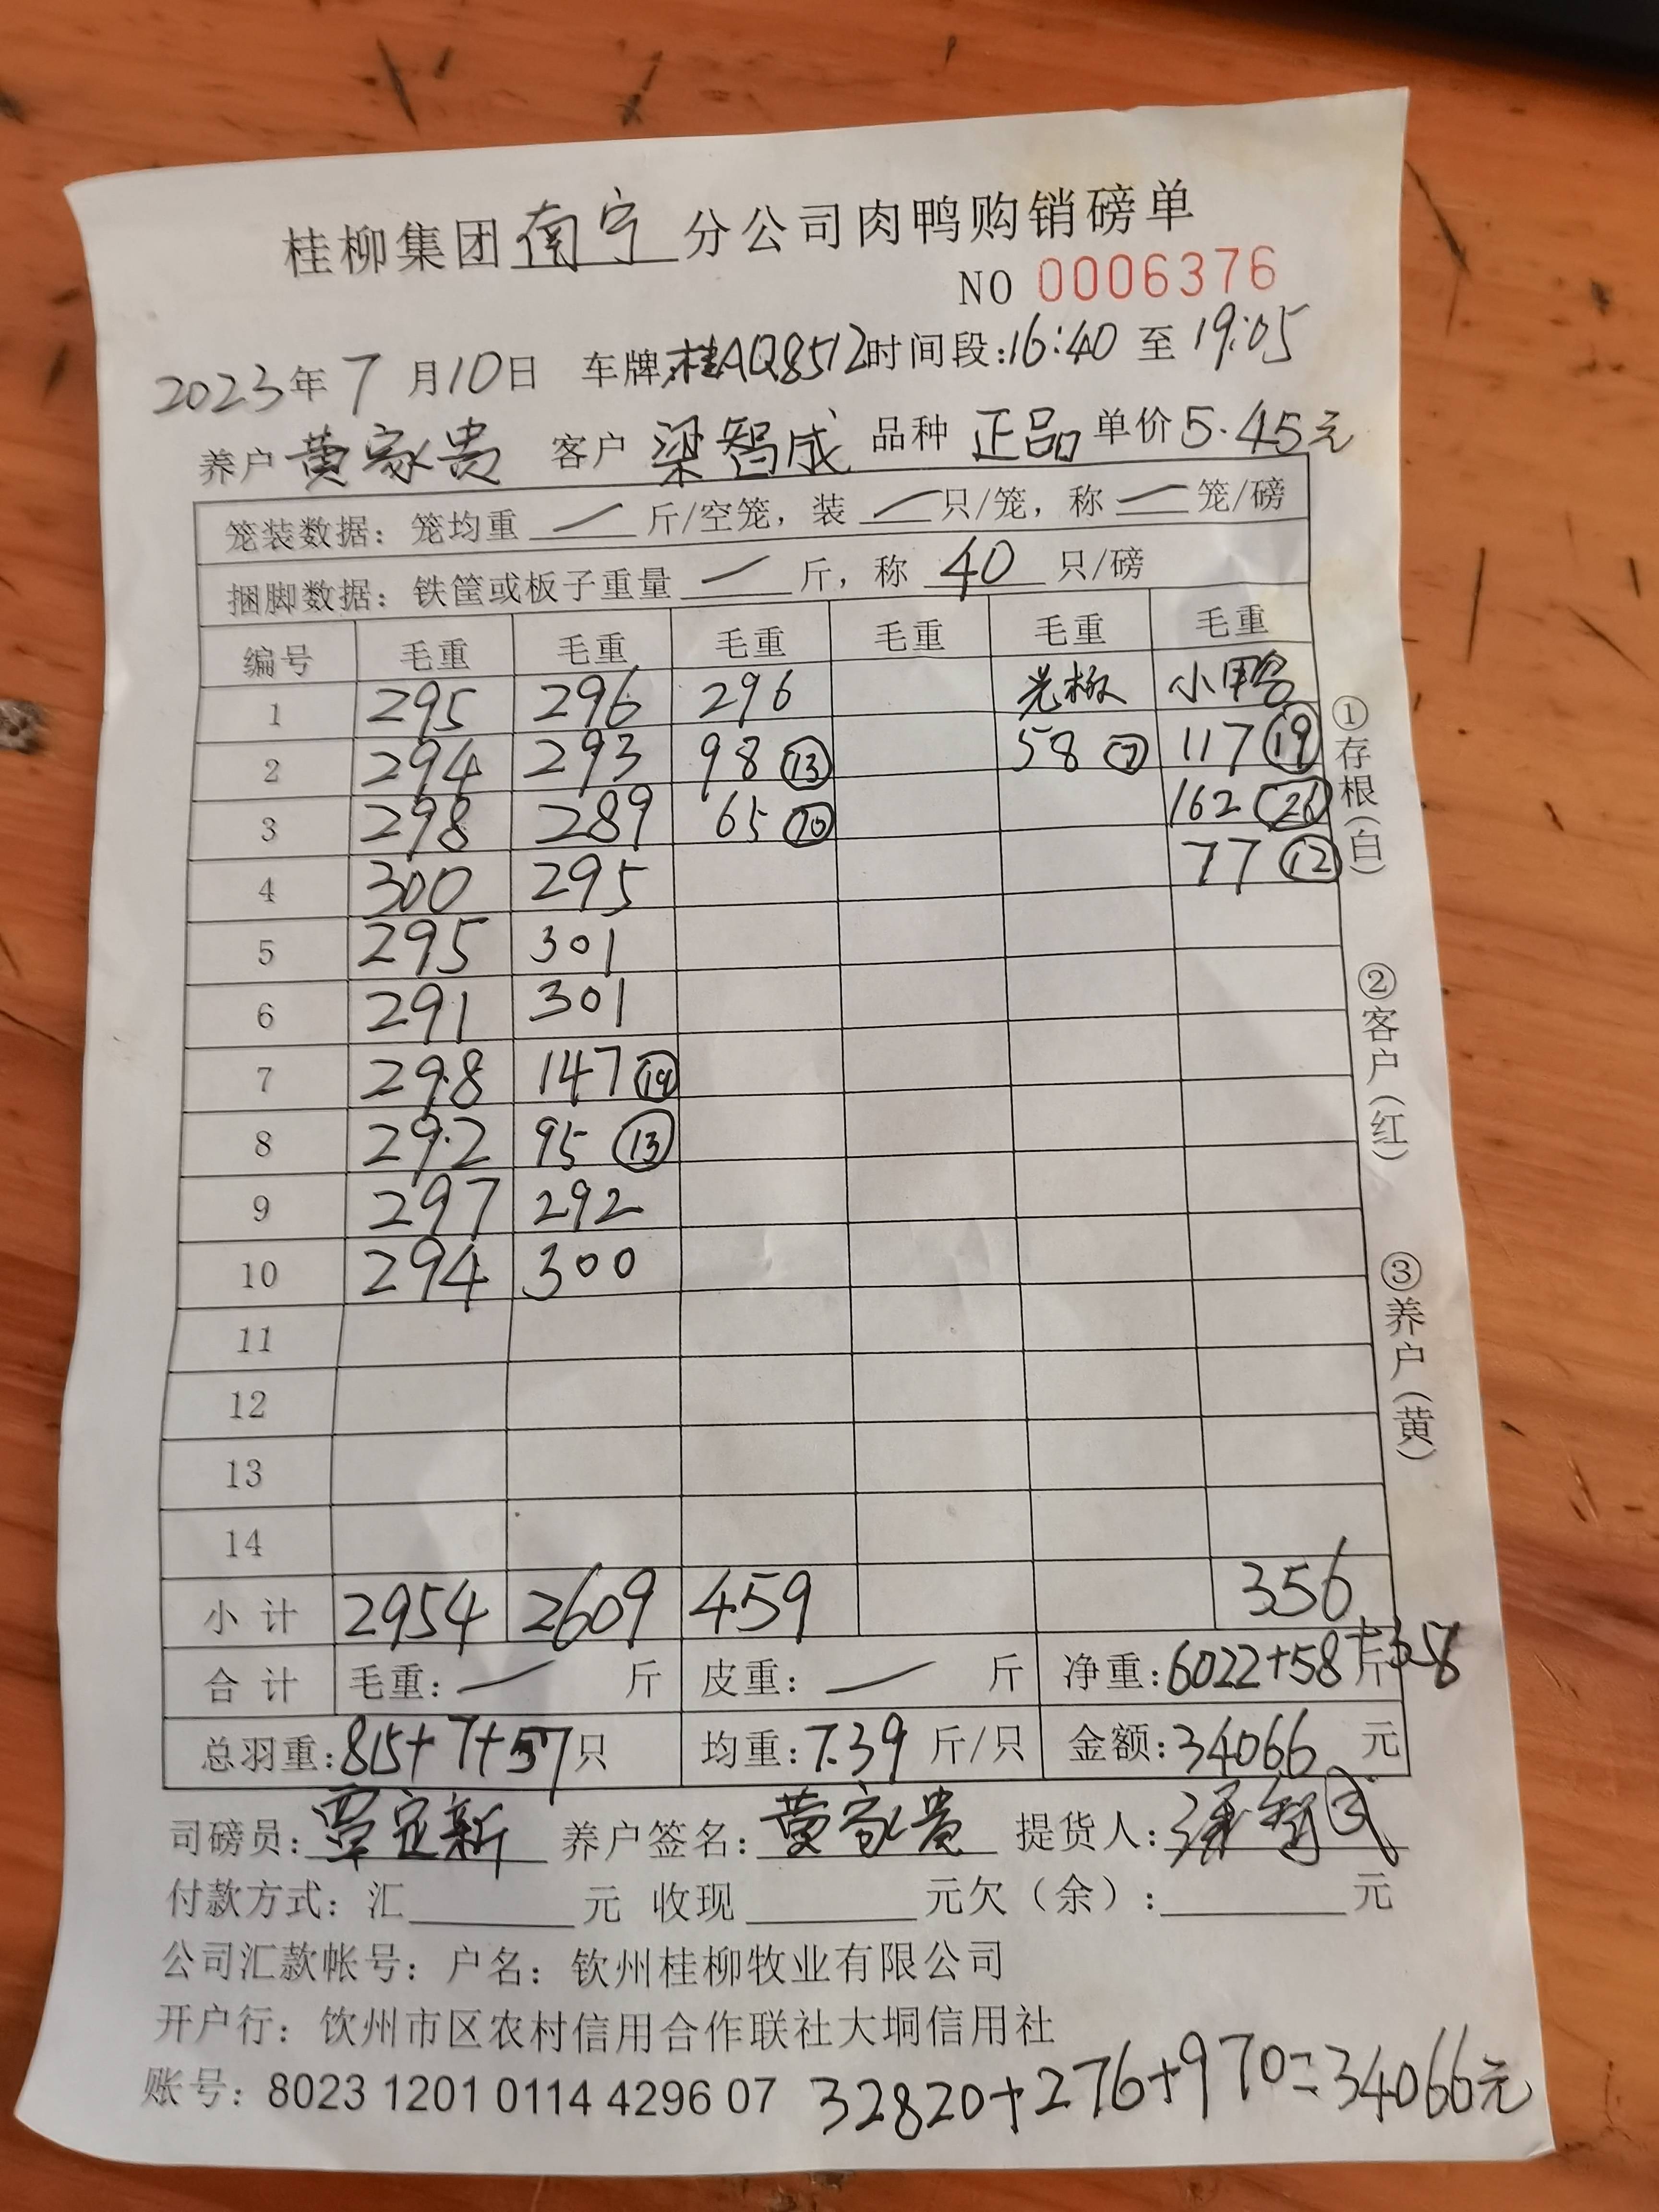 桂柳集团南宁分公司肉鸭购销磅单
NO 0006376
2023年7月10日 车牌:桂AQ8512时间段:16:40至19:05
养户黄家贵 客户梁智成 品种正品 单价5.45元
笼装数据：笼均重一斤/空笼，装一只/笼，称一笼/磅
捆脚数据：铁筐或板子重量一斤，称40只/磅
编号 毛重 毛重 毛重 毛重 毛重 毛重
1 295 296 296 光板 小鸭
2 294 293 98⑬ 58⑦ 117⑲
3 298 289 65⑩ 162㉖
4 300 295 77⑫
5 295 301
6 291 301
7 298 147
8 292 95⑬
9 297 292
10 294 300
11
12
13
14
小计 2954 2609 459 356
合计 毛重：一斤 皮重：一斤 净重:6022+58斤
总羽重:815+7+57只 均重:7.39斤/只 金额:34066元
司磅员:覃定新 养户签名:黄家贵 提货人:梁智成
付款方式：汇 元 收现 元欠（余）: 元
公司汇款帐号：户名：钦州桂柳牧业有限公司
开户行：饮州市区农村信用合作联社大垌信用社
账号：8023 1201 0114 4296 07 32820+276+970=34066元
①存根(白) ②客户(红) ③养户(黄)